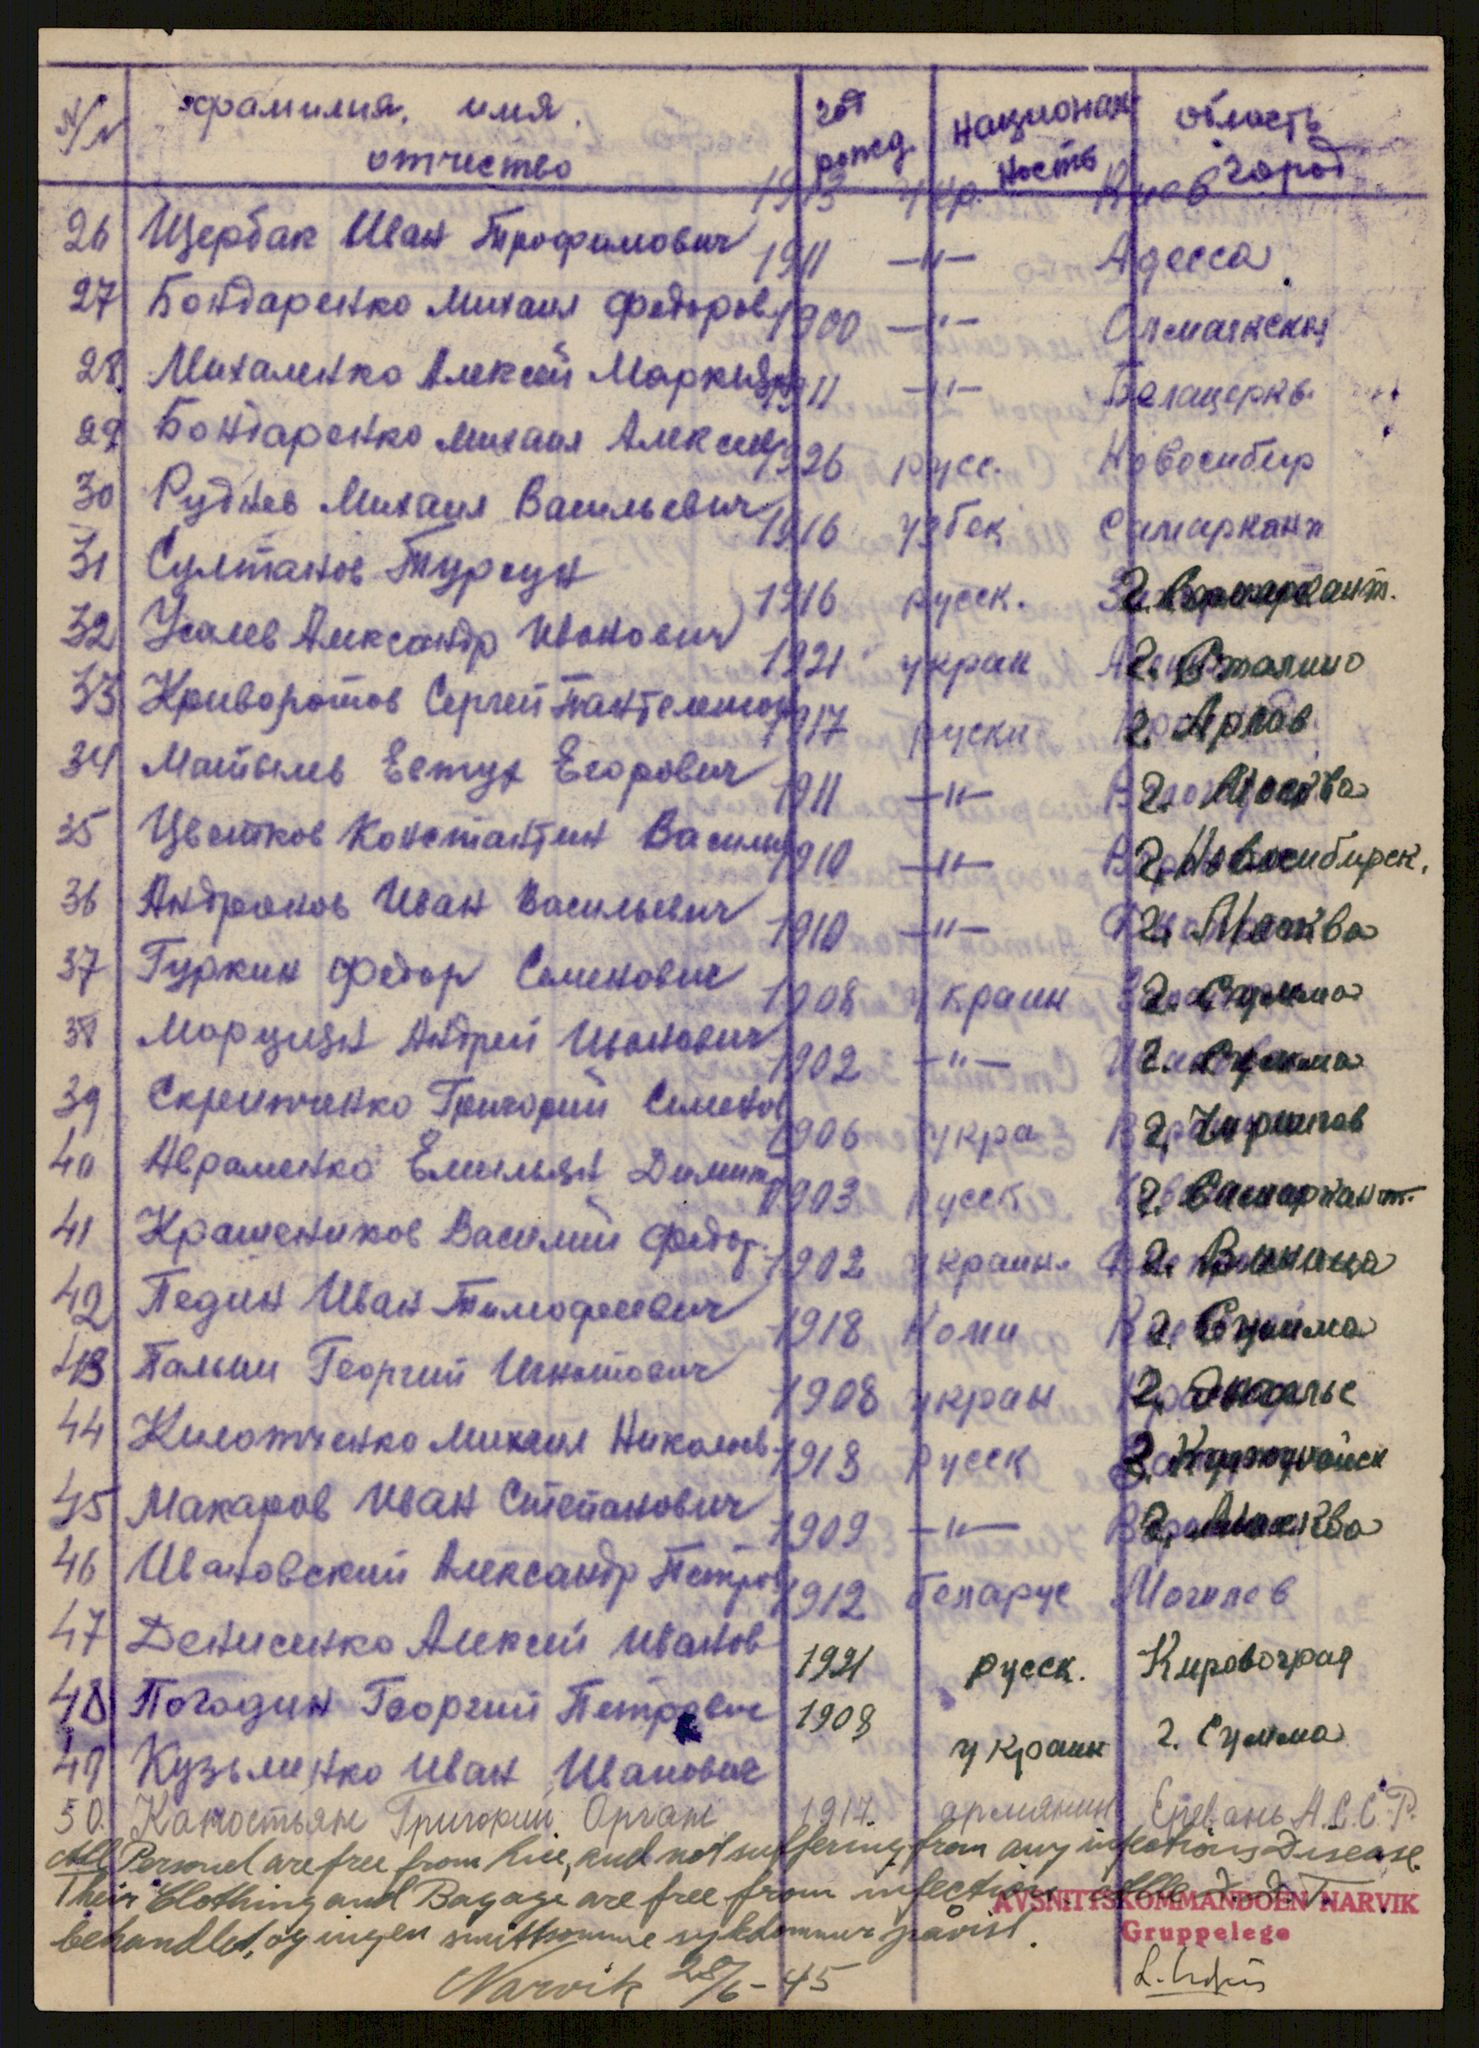 N/N фамилия, имя. отчество год рожд. национальность область город
1913 укр. Киев
26 Щербак Иван Трофимович 1911 —"— Адесса
27 Бондаренко Михаил Федоров 1900 —"—
28 Михаленко Алексей 1911 —"— Белацерквь
29 Бондаренко Михаил Алексеев 1926 русс. Новосибир
30 Руднев Михаил Васильевич 1916 узбек Самаркант
31 Султанов Турсун 1916 русск. г. Самаркант.
32 Усалев Александр Иванович 1921 украи г. Сталино
33 Криворотов Сергей Пантелемон 1917 руски г.
34 Егорович 1911 —"— г. Москва
35 Цветков Константин Васильев 1910 —"— г. Новосибирск.
36 Андронов Иван Васильевич 1910 —"— г. Москва
37 Гуркин Федор Семенович 1908 украин г. Сумма
38 Марцицян Андрей Иванович 1902 —"— г. Сумма
39 Григорий Семенов 1906 укра г.
40 Авраменко Емильян Димит 1903 русск г. Самаркант.
41 Крашеников Василий Федор. 1902 украин. г. Виница
42 Педин Иван Тимофеевич 1918 Коми г. Сумма
43 Георгий Игнатович 1908 украи г.
44 Михаил Николаев. 1918 Русск г.
45 Макаров Иван Степанович 1909 —"— г. Москва
46 Ивановский Александр Петров 1912 беларус Могилев
47 Денисенко Алексей Иванов 1921 русск. Кировоград
48 Погодин Георгий Петрович 1908 украин г. Сумма
49 Кузьминко Иван Иванович
50. Григорий 1917. армянин Еревань А.С.С.Р.
All Personel are free from Lice, and not suffering from any infectious Disease.
Their Clothing and Bagage are free from infection. Alle D.D.T.
AVSNITTSKOMMANDOEN NARVIK
behandlet, og ingen smittsomme sykdommer påvist.
Gruppelege
Narvik 28/6-45